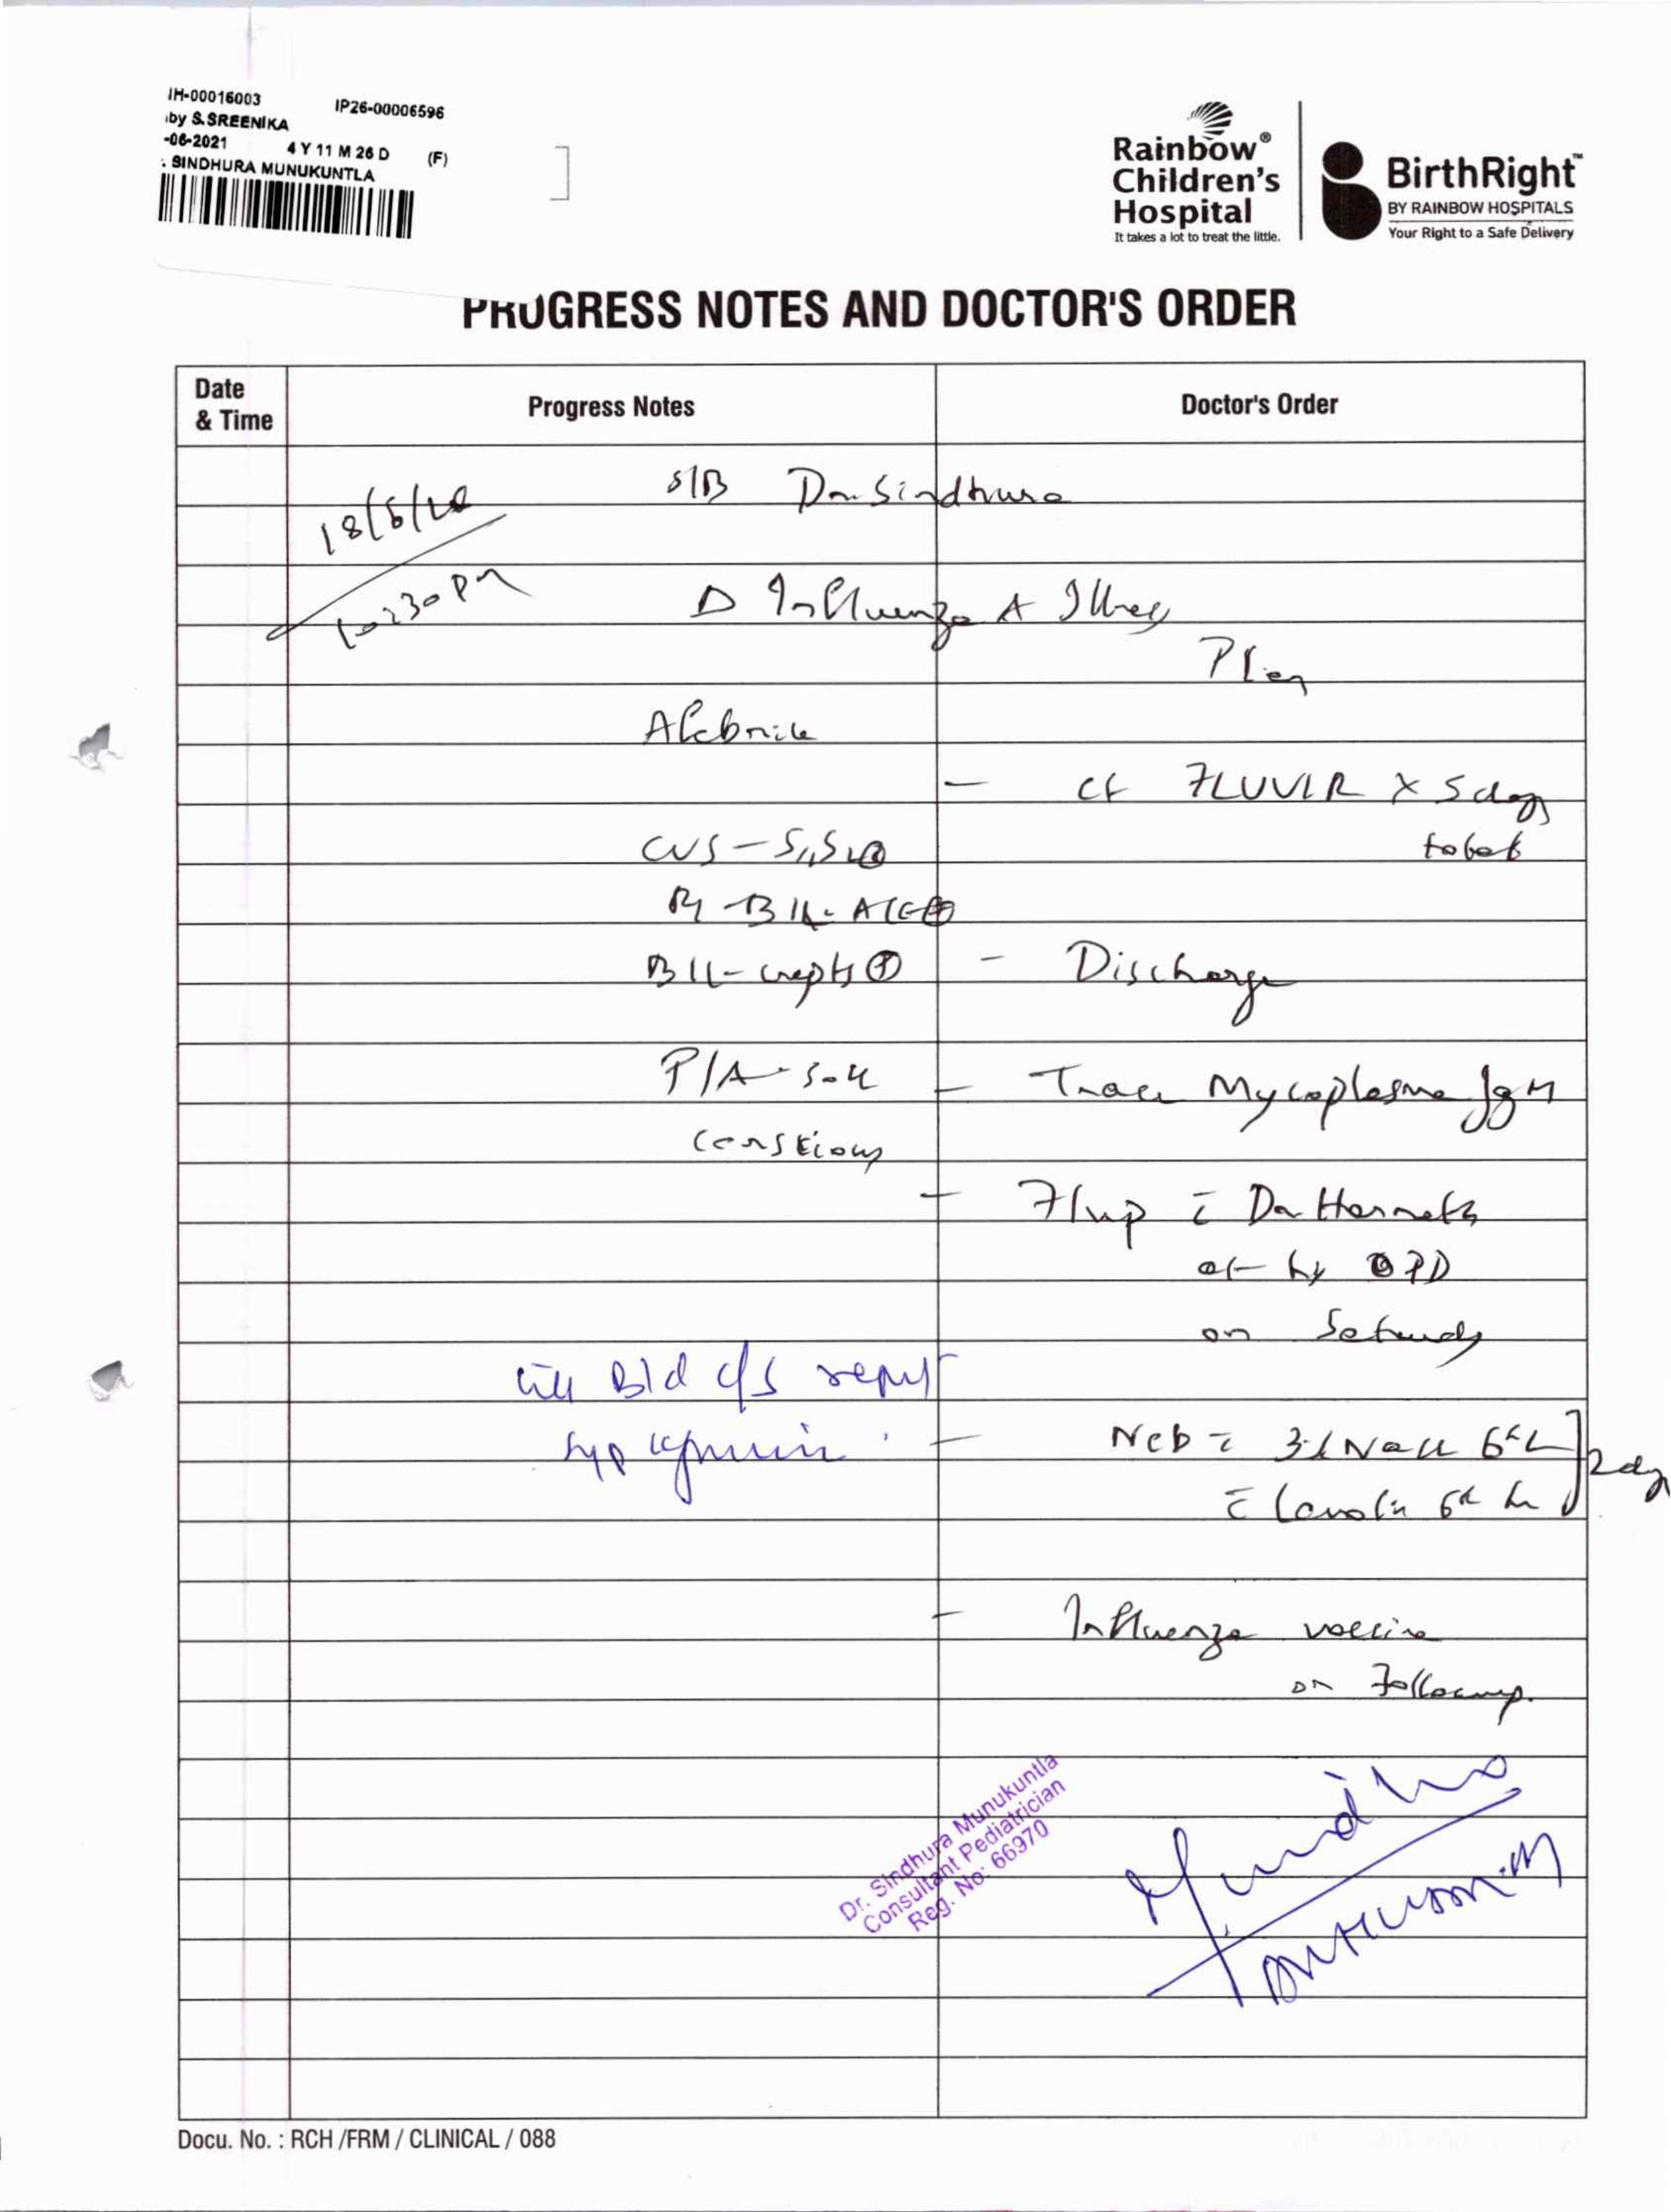 IH-00016003 IP26-00006596
by S.SREENIKA
-06-2021 4 Y 11 M 26 D (F)
: SINDHURA MUNUKUNTLA
Rainbow®
Children's
Hospital
It takes a lot to treat the little.
BirthRight™
BY RAINBOW HOSPITALS
Your Right to a Safe Delivery
PROGRESS NOTES AND DOCTOR'S ORDER
Date
& Time
Progress Notes
Doctor's Order
S/B Dr. Sindhura
10:30 pm
Δ Influenza A Illness
Plan
Afebrile
- Ct FLUVIR x 5 days
CVS - S1,S2⊕
B/L-crepts ⊕
- Discharge
P/A - Soft
- Trace Mycoplasma IgM
Conscious
- F/up c̄ Dr
OPD
on Saturday
till Bld c/s report
Syp
- Neb c̄ 3% NaCl 6th h ] 2 days
c̄ 6th h
- Influenza vaccine
on Followup.
Dr. Sindhura Munukuntla
Consultant Pediatrician
Reg. No: 66970
Docu. No. : RCH /FRM / CLINICAL / 088